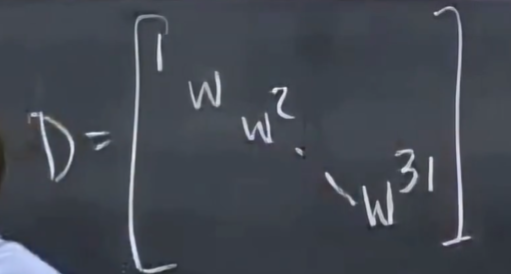 D = [ 1
w
w²
⋱
w³¹ ]